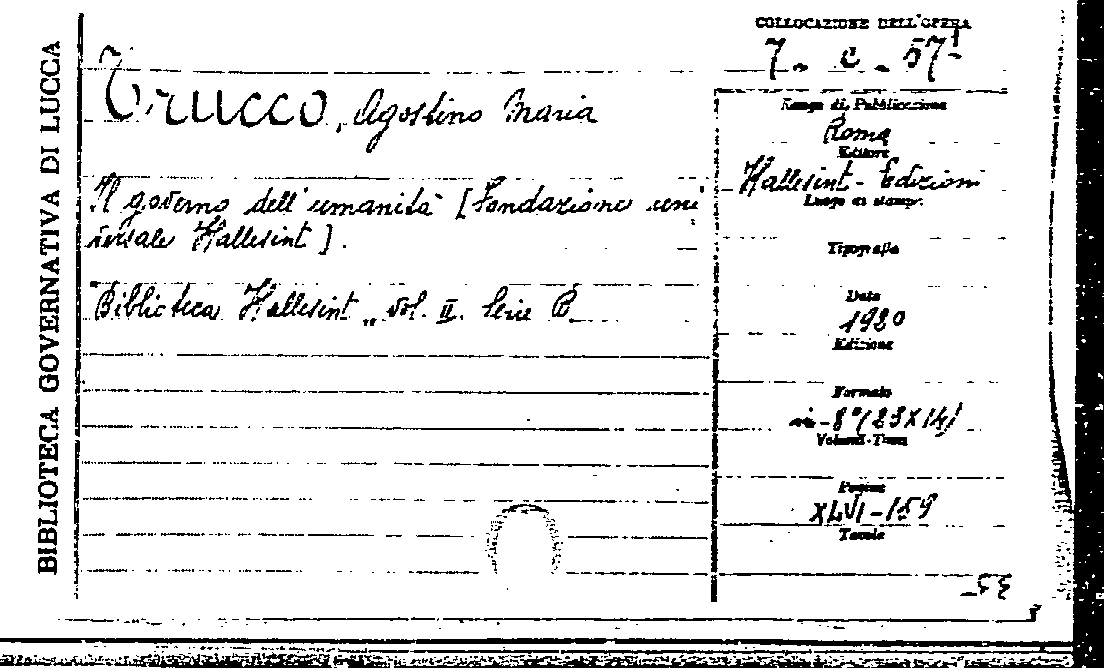 BIBLIOTECA GOVERNATIVA DI LUCCA
COLLOCAZIONE DELL'OPERA
7. c. 57¹
Trucco, Agostino Maria
Il governo dell'umanità [Fondazione uni
versale Hallesint].
"Biblioteca Hallesint" vol. II. Serie B
Luogo di Pubblicazione
Roma
Editore
Hallesint - Edizioni
Luogo di stampa
Tipografia
Data
1920
Edizione
Formato
in-8° (23X14)
Volumi-Tomi
Pagine
XLVI-159
Tavole